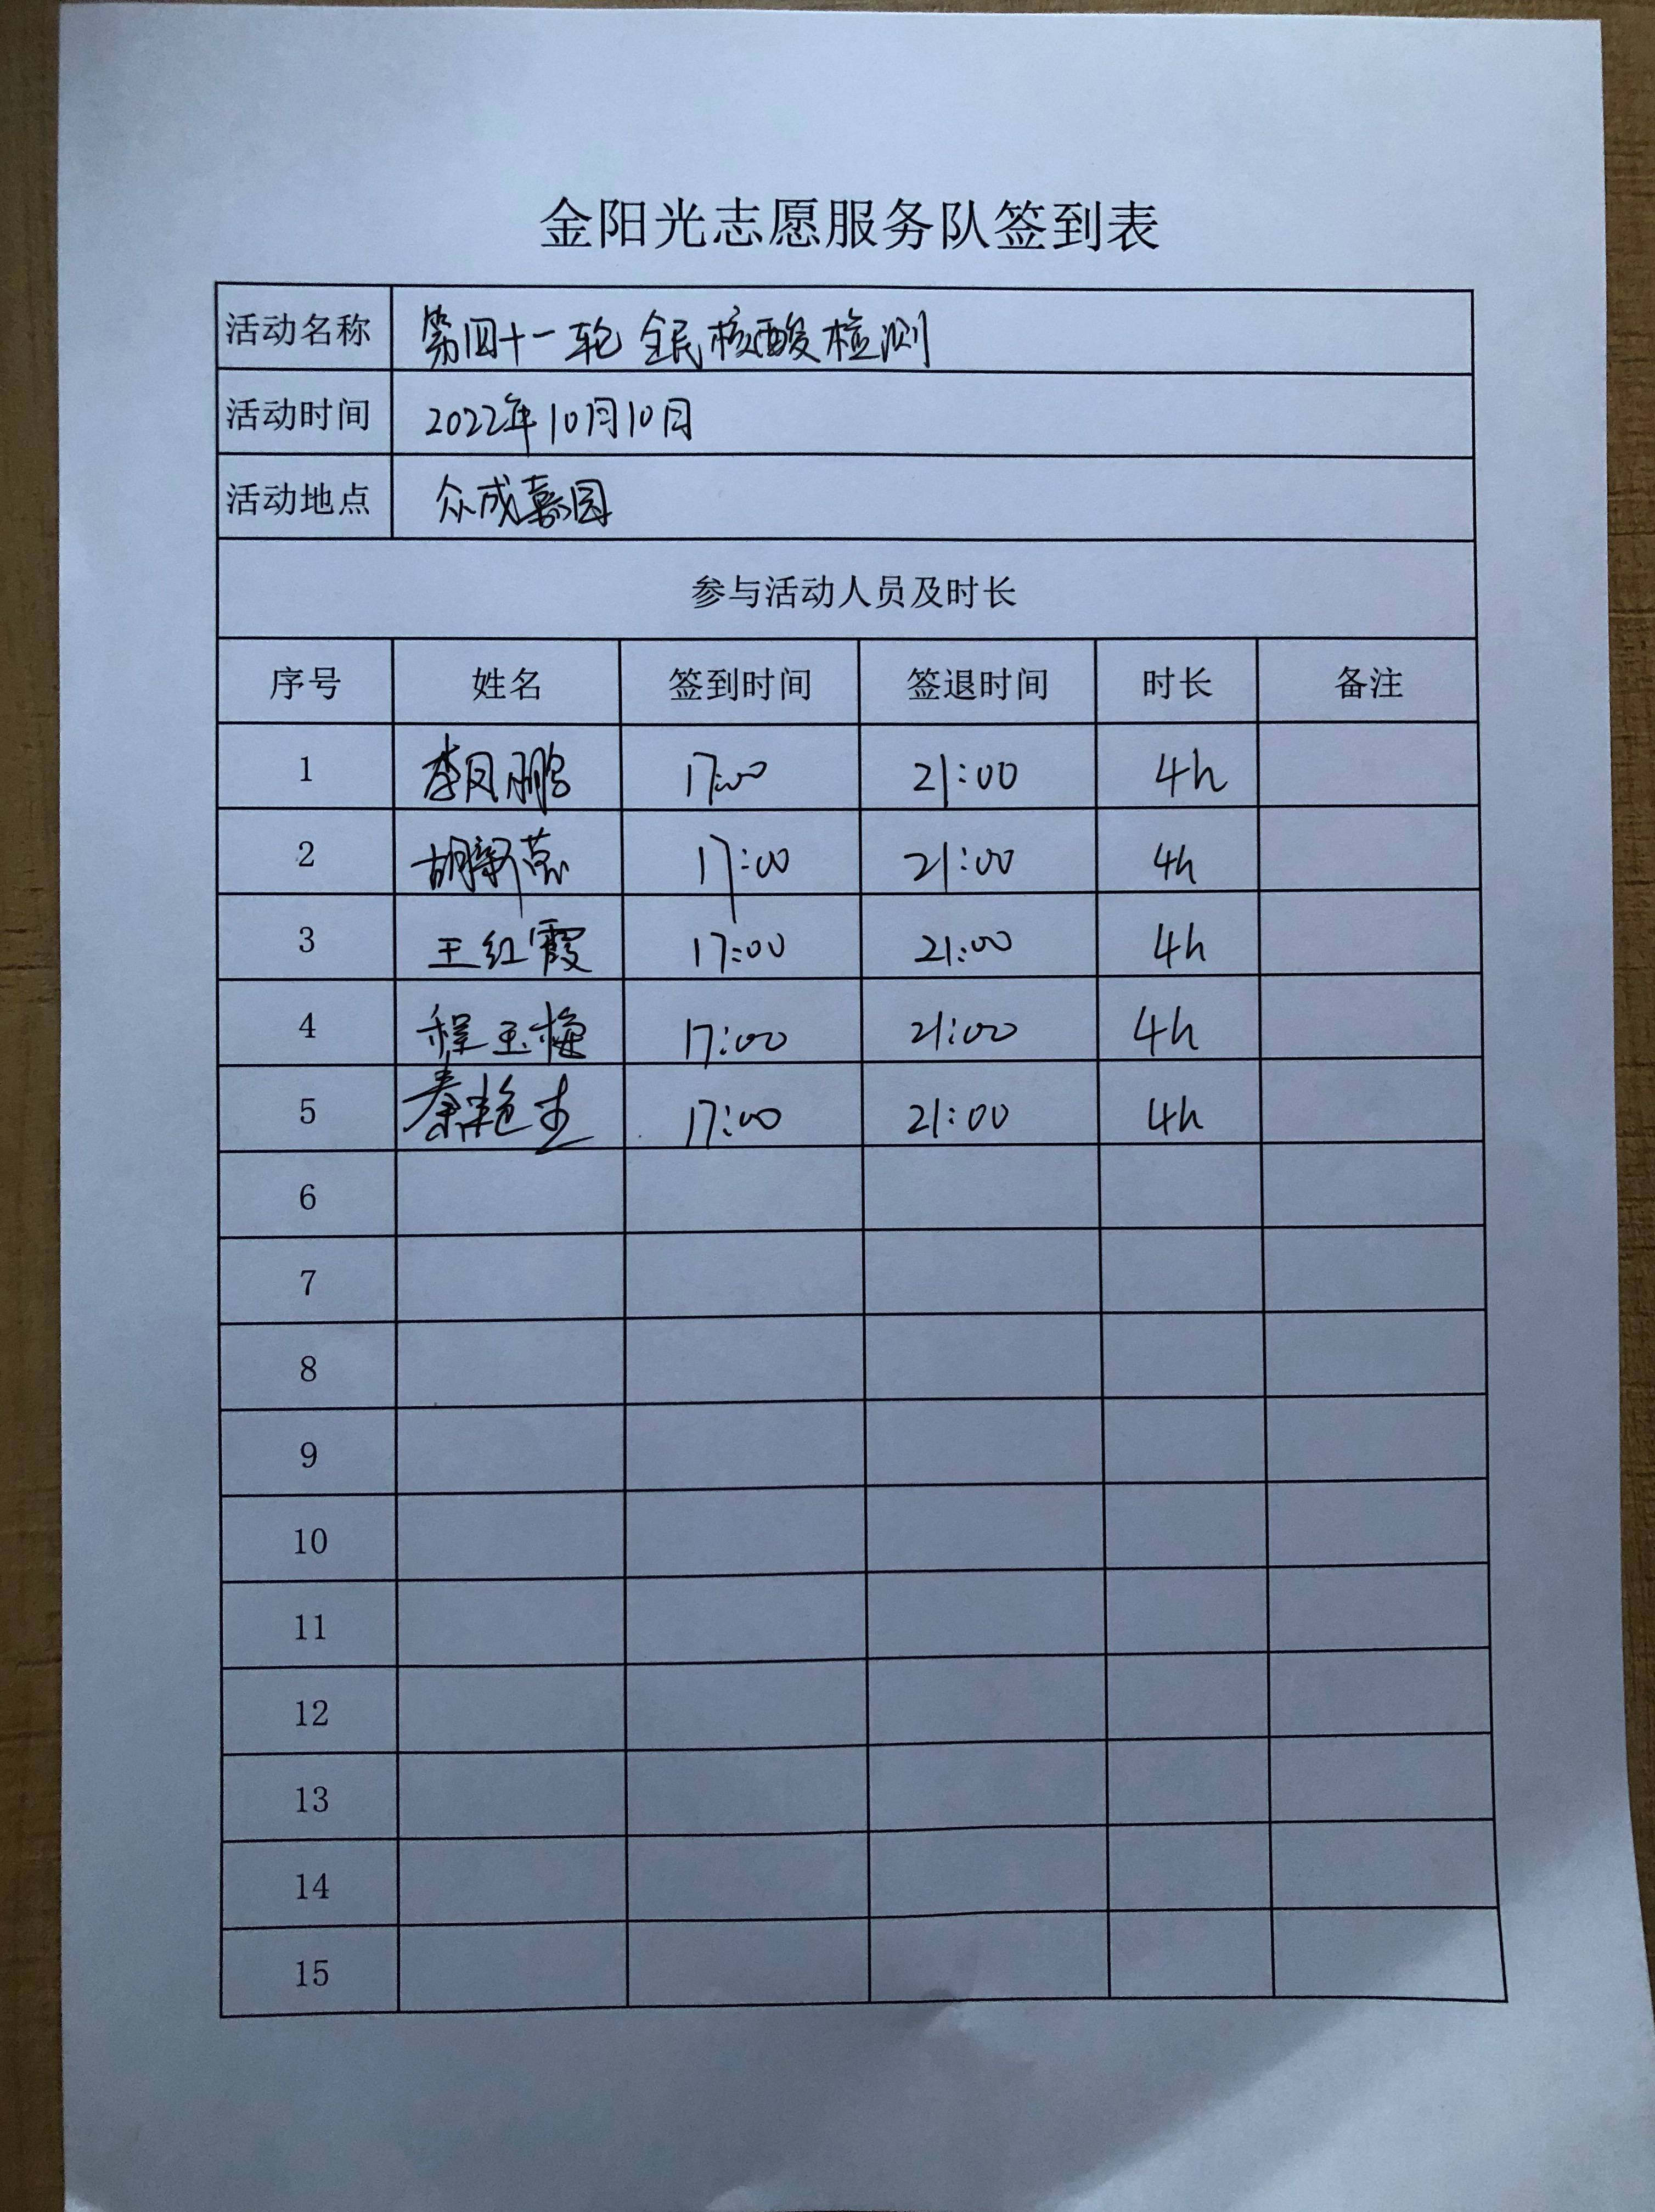 金阳光志愿服务队签到表
活动名称 第四十一轮 全民核酸检测
活动时间 2022年10月10日
活动地点 众成嘉园
参与活动人员及时长
序号 姓名 签到时间 签退时间 时长 备注
1 李凤鹏 17:00 21:00 4h
2 17:00 21:00 4h
3 王红霞 17:00 21:00 4h
4 程玉梅 17:00 21:00 4h
5 17:00 21:00 4h
6
7
8
9
10
11
12
13
14
15